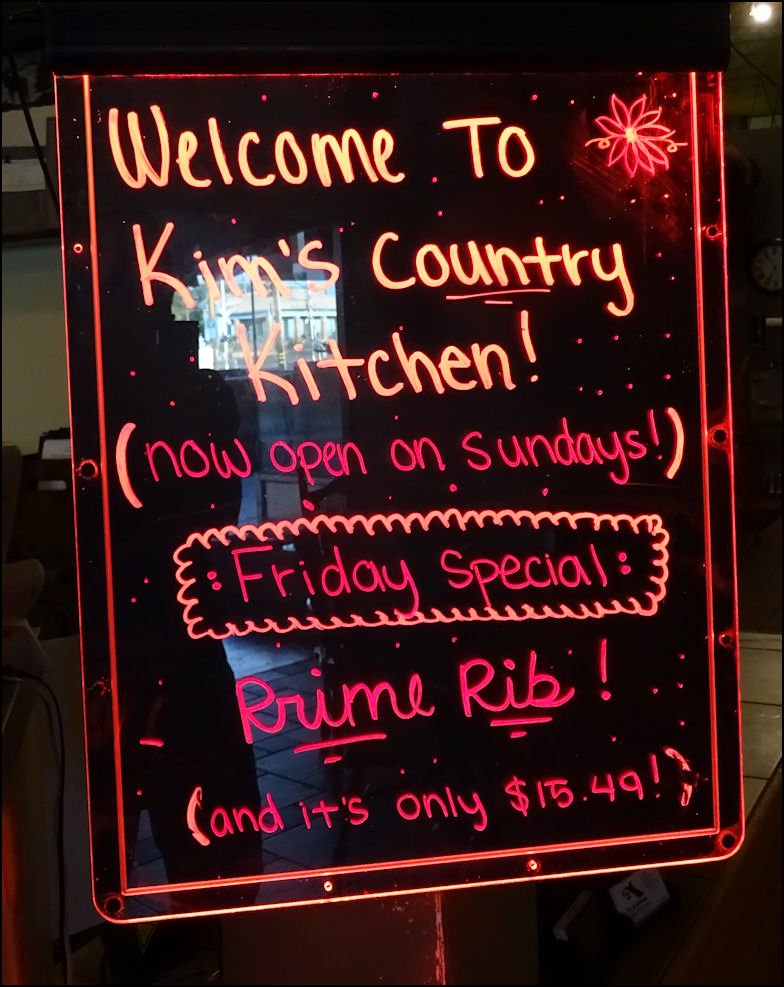 Welcome To
Kim's Country
Kitchen!
(now open on Sundays!)
: Friday Special :
Prime Rib!
(and it's only $15.49!)